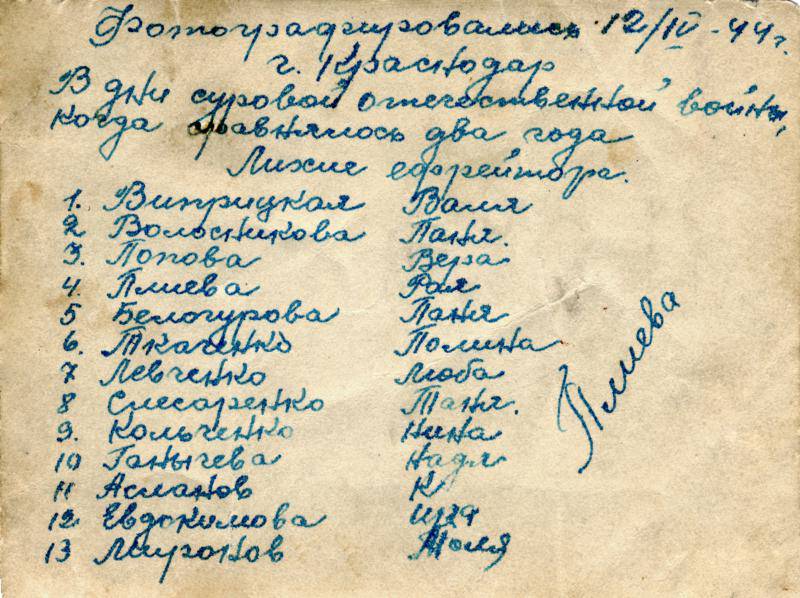 Фотографировались 12/IV-44г.
г. Краснодар
В дни суровой отечественной войны,
когда равнялось два года
Лихие ефрейтора.
1. Виприцкая Валя
2 Волосникова Паня.
3. Попова Вера
4. Плиева Рая
5 Белогурова Паня
6. Ткаченко Полина
7 Левченко Люба
8 Слесаренко Таня.
9. Кольченко Нина
10 Ганычева Надя
11 Асланов К
12. Евдокимова
13 Миронов Толя
Плиева